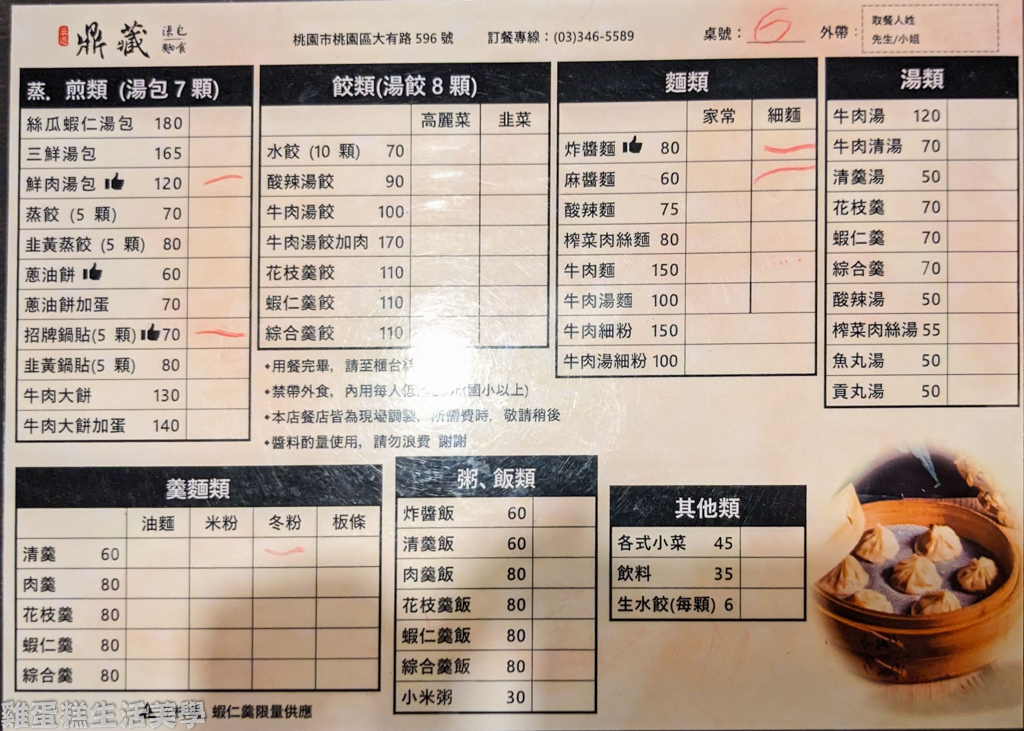 鼎藏 湯包 麵食
桃園市桃園區大有路 596 號 訂餐專線：(03)346-5589 桌號：6 外帶：
取餐人姓
先生/小姐
蒸．煎類 (湯包 7 顆)
絲瓜蝦仁湯包 180
三鮮湯包 165
鮮肉湯包 120
蒸餃 (5 顆) 70
韭黃蒸餃 (5 顆) 80
蔥油餅 60
蔥油餅加蛋 70
招牌鍋貼(5 顆) 70
韭黃鍋貼(5 顆) 80
牛肉大餅 130
牛肉大餅加蛋 140
餃類(湯餃 8 顆)
高麗菜 韭菜
水餃 (10 顆) 70
酸辣湯餃 90
牛肉湯餃 100
牛肉湯餃加肉 170
花枝羹餃 110
蝦仁羹餃 110
綜合羹餃 110
麵類
家常 細麵
炸醬麵 80
麻醬麵 60
酸辣麵 75
榨菜肉絲麵 80
牛肉麵 150
牛肉湯麵 100
牛肉細粉 150
牛肉湯細粉 100
湯類
牛肉湯 120
牛肉清湯 70
清羹湯 50
花枝羹 70
蝦仁羹 70
綜合羹 70
酸辣湯 50
榨菜肉絲湯 55
魚丸湯 50
貢丸湯 50
◆用餐完畢，請至櫃台
◆禁帶外食，內用每人低 (國小以上)
◆本店餐店皆為現場調製，所需費時，敬請稍後
◆醬料酌量使用，請勿浪費 謝謝
羹麵類
油麵 米粉 冬粉 板條
清羹 60
肉羹 80
花枝羹 80
蝦仁羹 80
綜合羹 80
蝦仁羹限量供應
粥、飯類
炸醬飯 60
清羹飯 60
肉羹飯 80
花枝羹飯 80
蝦仁羹飯 80
綜合羹飯 80
小米粥 30
其他類
各式小菜 45
飲料 35
生水餃(每顆) 6
雞蛋糕生活美學